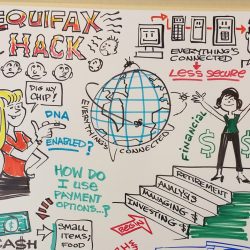 EQUIFAX
HACK
DIG MY
CHIP!
DNA
ENABLED?
EVERYTHING'S
CONNECTED
EVERYTHING'S
CONNECTED
LESS SECURE
FINANCIAL
HOW DO
I USE
PAYMENT
OPTIONS..?
RETIREMENT
ANALYSIS
MANAGING $
INVESTING $
CASH
SMALL
ITEMS;
FOOD